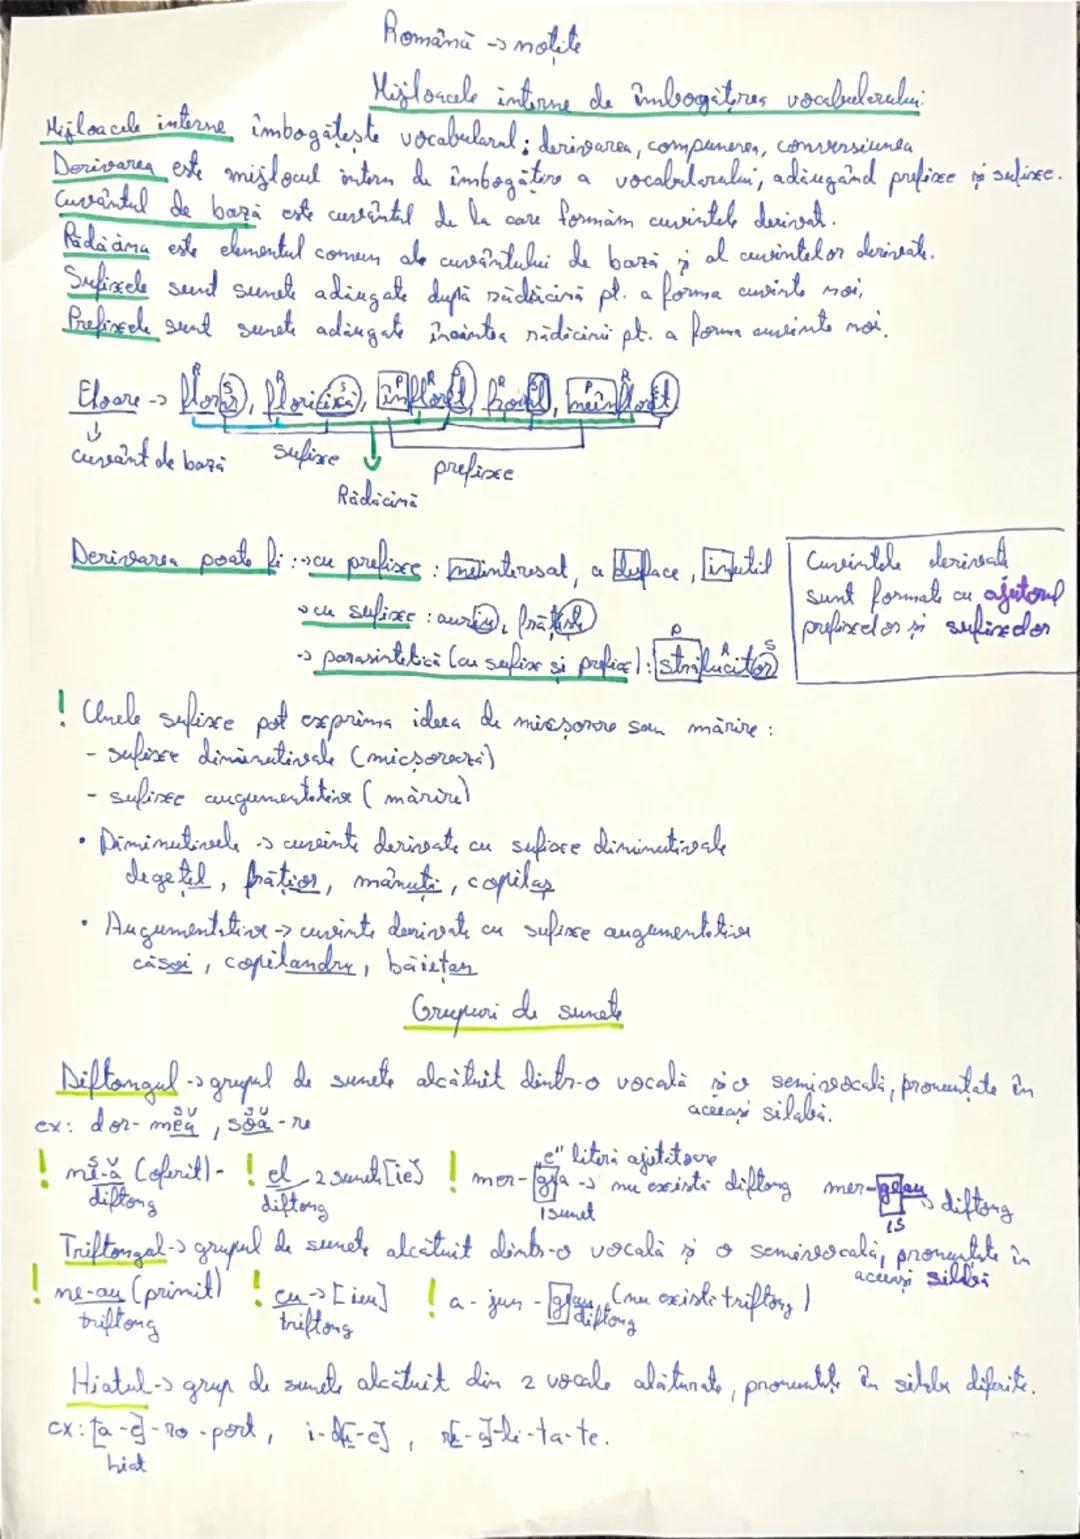 Română -> notițe
Mijloacele interne de îmbogățirea vocabularului:
Mijloacele interne îmbogățește vocabularul: derivarea, compunerea, conversiunea
Derivarea este mijlocul intern de îmbogățire a vocabularului, adăugând prefixe și sufixe.
Cuvântul de bază este cuvântul de la care formăm cuvintele derivat.
Rădăcina este elementul comun ale cuvântului de bază și al cuvintelor derivate.
Sufixele sunt sunete adăugate după rădăcină pt. a forma cuvinte noi,
Prefixele sunt sunete adăugate înaintea rădăcinii pt. a forma cuvinte noi.
Floare -> florar, floricică, înflorit, neînflorit
cuvânt de bază sufixe prefixe
Rădăcină
Derivarea poate fi: -> cu prefixe: neinteresat, a desface, inutil
-> cu sufixe: auriu, frățesc
-> parasintetică (cu sufixe și prefixe): străluĉitor
Cuvintele derivate
sunt formate cu ajutorul
prefixelor și sufixelor
! Unele sufixe pot exprima ideea de micșorare sau mărire:
- sufixe diminutivale (micșorează)
- sufixe augumentative (mărire)
• Diminutivele -> cuvinte derivate cu sufixe diminutivale
degețel, frățior, mănuță, copilaș
• Augumentative -> cuvinte derivate cu sufixe augumentative
căsoi, copilandru, băiețan
Grupuri de sunete
Diftongul -> grupul de sunete alcătuit dintr-o vocală și o semivocală, pronunțate în
aceeași silabă.
ex: dor-mea, soa-re
! mi-a (oferit) - ! el 2 sunete [ie] ! mer-gea -> nu există diftong mer-geau -> diftong
"e" literă ajutătoare
diftong diftong 1sunet 1S
Triftongul -> grupul de sunete alcătuit dintr-o vocală și o semivocală, pronunțate în
aceeași silabă
! ne-au (primit) ! eu -> [ieu] ! a-jun-geau (nu există triftong)
triftong triftong diftong
Hiatul -> grup de sunete alcătuit din 2 vocale alăturate, pronunțate în silabe diferite.
ex: [a-e]-ro-port, i-de-e], re-a]-li-ta-te.
hiat